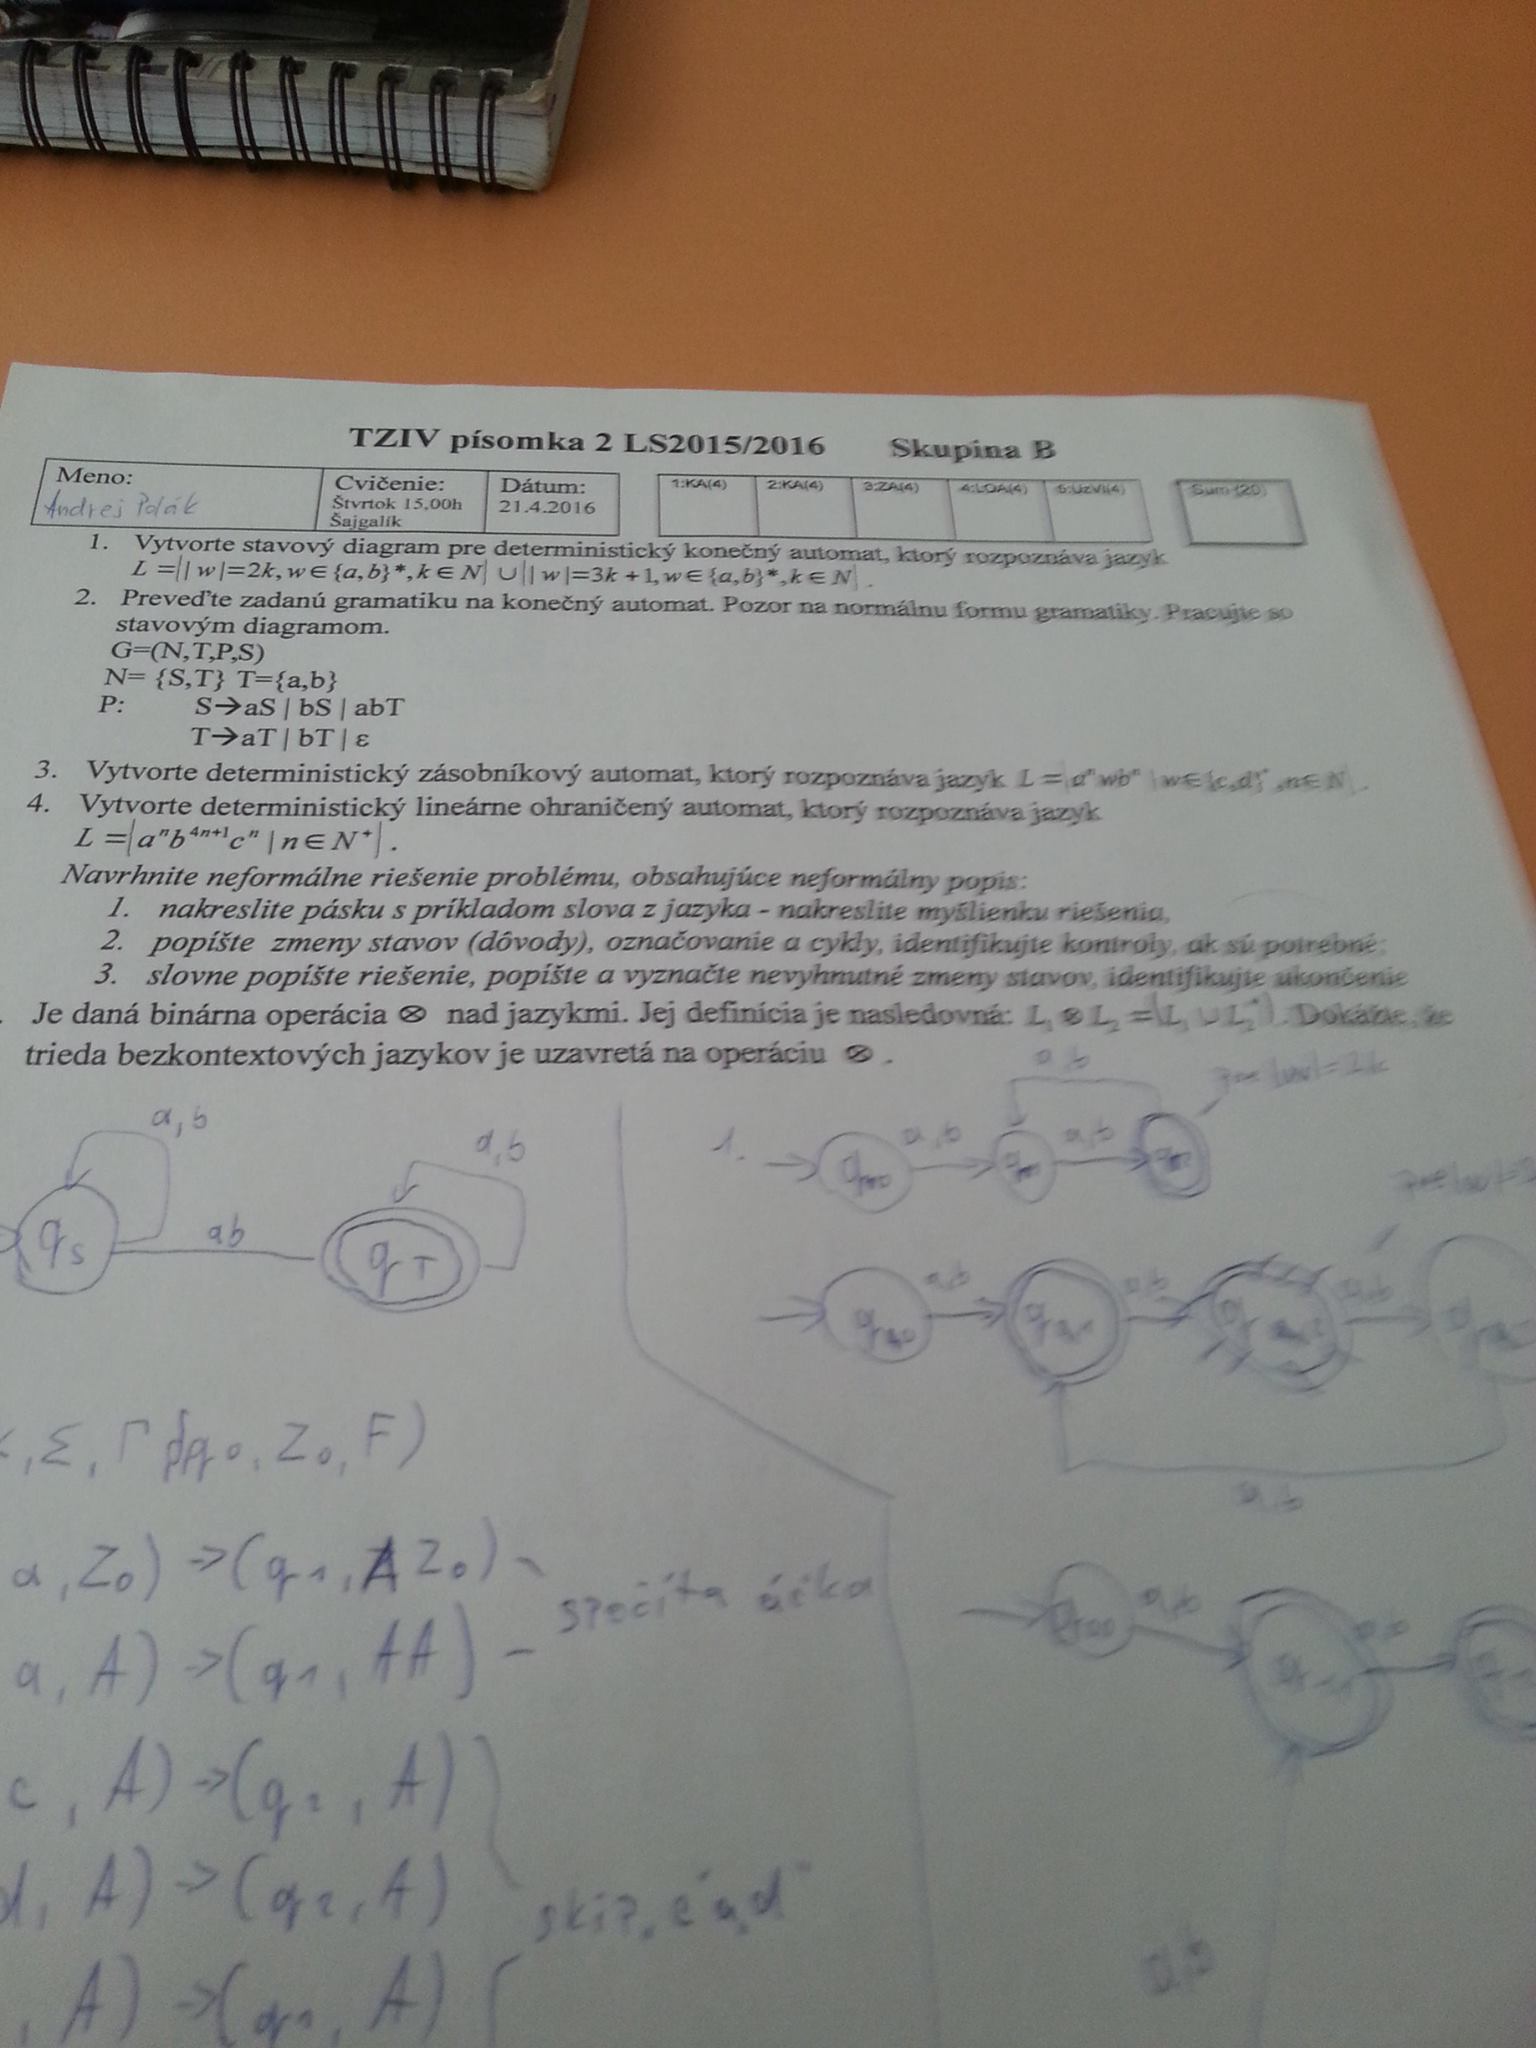 TZIV písomka 2 LS2015/2016 Skupina B
Meno:
Andrej Polák
Cvičenie:
Štvrtok 15,00h
Šajgalík
Dátum:
21.4.2016
1:KA(4) 2:KA(4) 3:ZA(4) 4:LOA(4) 5:UzVl(4) Sum (20)
1. Vytvorte stavový diagram pre deterministický konečný automat, ktorý rozpoznáva jazyk
L ={| w|=2k, w∈{a,b}*, k∈N} ∪ {| w|=3k+1, w∈{a,b}*, k∈N} .
2. Preveďte zadanú gramatiku na konečný automat. Pozor na normálnu formu gramatiky. Pracujte so
stavovým diagramom.
G=(N,T,P,S)
N= {S,T} T={a,b}
P: S→aS | bS | abT
T→aT | bT | ε
3. Vytvorte deterministický zásobníkový automat, ktorý rozpoznáva jazyk L ={aⁿwbⁿ |w∈{c,d}*, n∈N}.
4. Vytvorte deterministický lineárne ohraničený automat, ktorý rozpoznáva jazyk
L ={aⁿb⁴ⁿ⁺¹cⁿ | n∈N⁺} .
Navrhnite neformálne riešenie problému, obsahujúce neformálny popis:
1. nakreslite pásku s príkladom slova z jazyka - nakreslite myšlienku riešenia,
2. popíšte zmeny stavov (dôvody), označovanie a cykly, identifikujte kontroly, ak sú potrebné;
3. slovne popíšte riešenie, popíšte a vyznačte nevyhnutné zmeny stavov, identifikujte ukončenie
. Je daná binárna operácia ⊗ nad jazykmi. Jej definícia je nasledovná: L₁ ⊗ L₂ = (L₁ ∪ L₂*). Dokážte, že
trieda bezkontextových jazykov je uzavretá na operáciu ⊗ .
a,b
a,b
qS
ab
qT
1.
a,b
a,b
a,b
|w|=2k
a,b
a,b
a,b
a,b
,Σ,Γ,δ,q0,Z0,F)
a,Z0)→(q1,AZ0)
spočíta áčka
a,A)→(q1,AA)
c,A)→(q2,A)
d,A)→(q2,A)
skip
,A)→(q1,A)
a,b
a,b
a,b